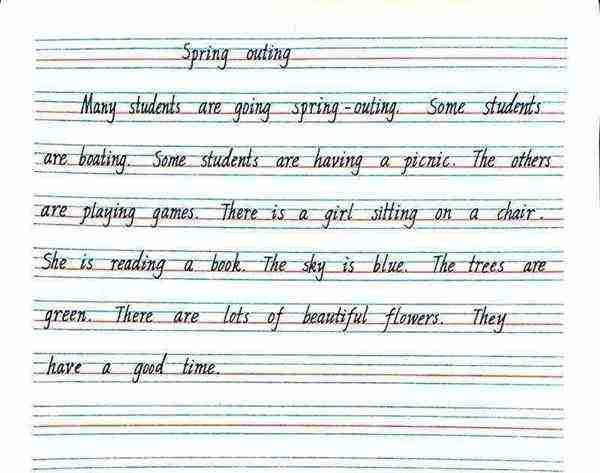 Spring outing
Many students are going spring-outing. Some students
are boating. Some students are having a picnic. The others
are playing games. There is a girl sitting on a chair.
She is reading a book. The sky is blue. The trees are
green. There are lots of beautiful flowers. They
have a good time.